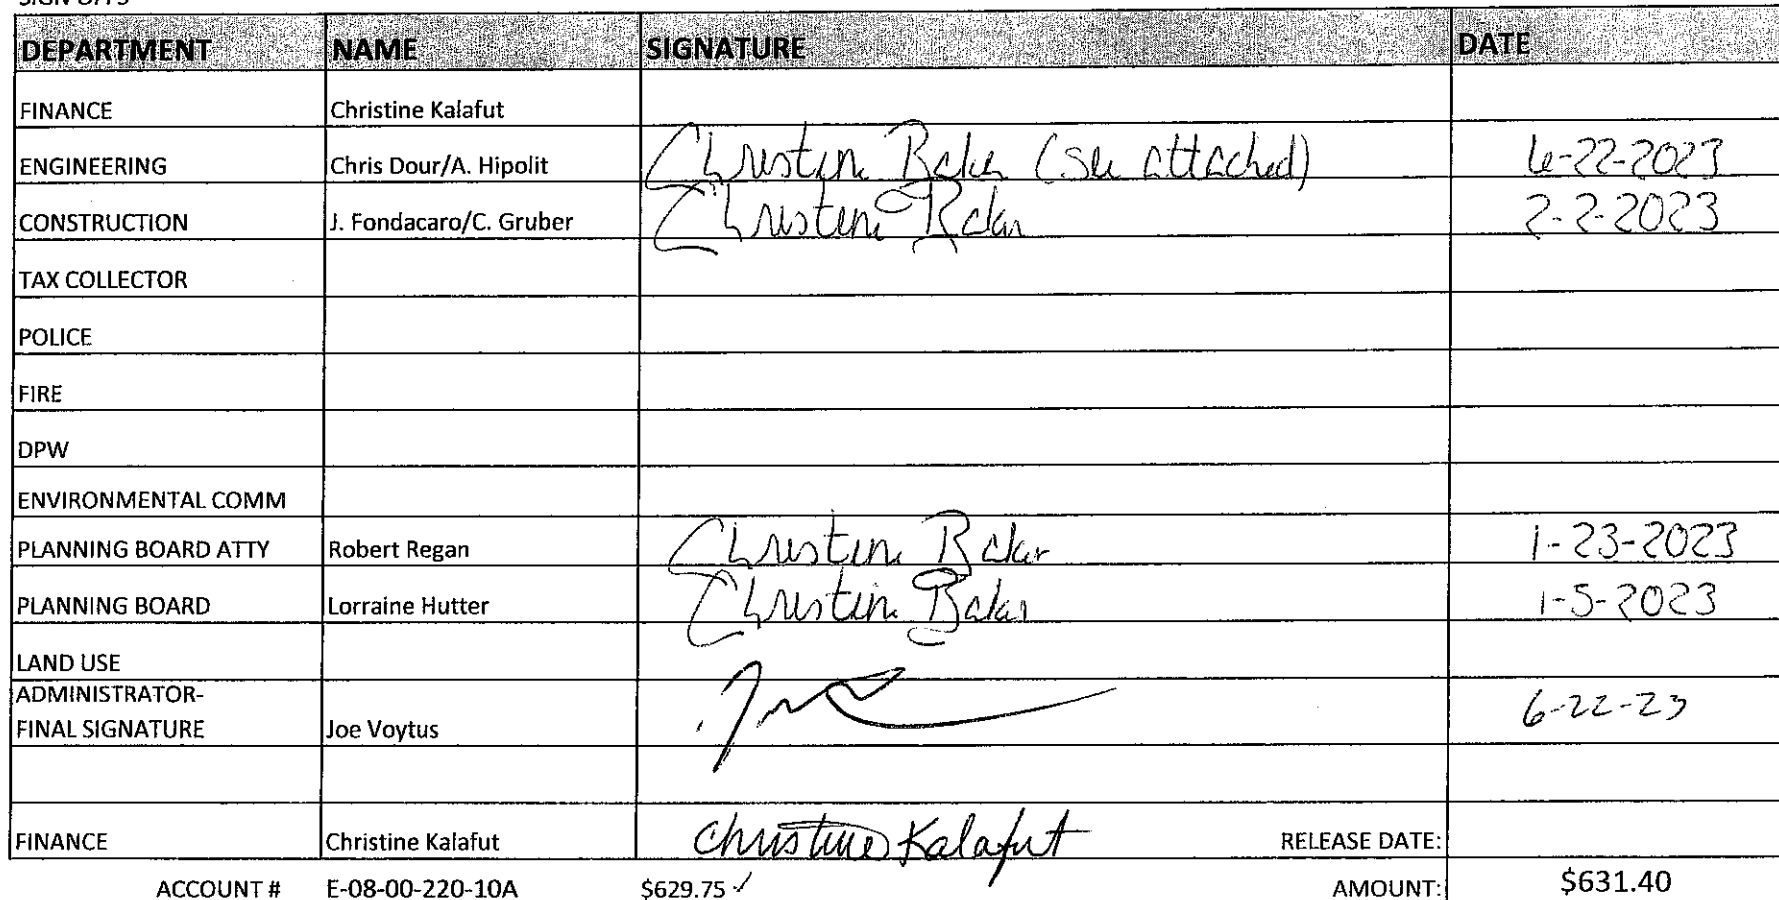 DEPARTMENT NAME SIGNATURE DATE
FINANCE Christine Kalafut
ENGINEERING Chris Dour/A. Hipolit Christine Baker (see attached) 6-22-2023
CONSTRUCTION J. Fondacaro/C. Gruber Christine Baker 2-2-2023
TAX COLLECTOR
POLICE
FIRE
DPW
ENVIRONMENTAL COMM
PLANNING BOARD ATTY Robert Regan Christine Baker 1-23-2023
PLANNING BOARD Lorraine Hutter Christine Baker 1-5-2023
LAND USE
ADMINISTRATOR-
FINAL SIGNATURE Joe Voytus 6-22-23
FINANCE Christine Kalafut Christine Kalafut RELEASE DATE:
ACCOUNT # E-08-00-220-10A $629.75 ✓ AMOUNT: $631.40